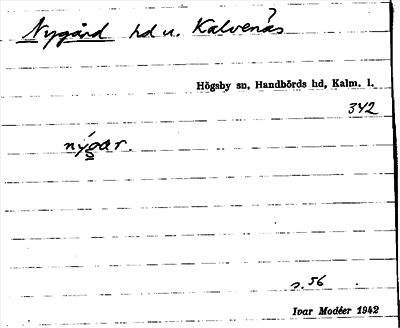 Nygård hd u. Kalvenäs
Högsby sn, Handbörds hd, Kalm. l.
342
nýgar.
s. 56
Ivar Modéer 1942